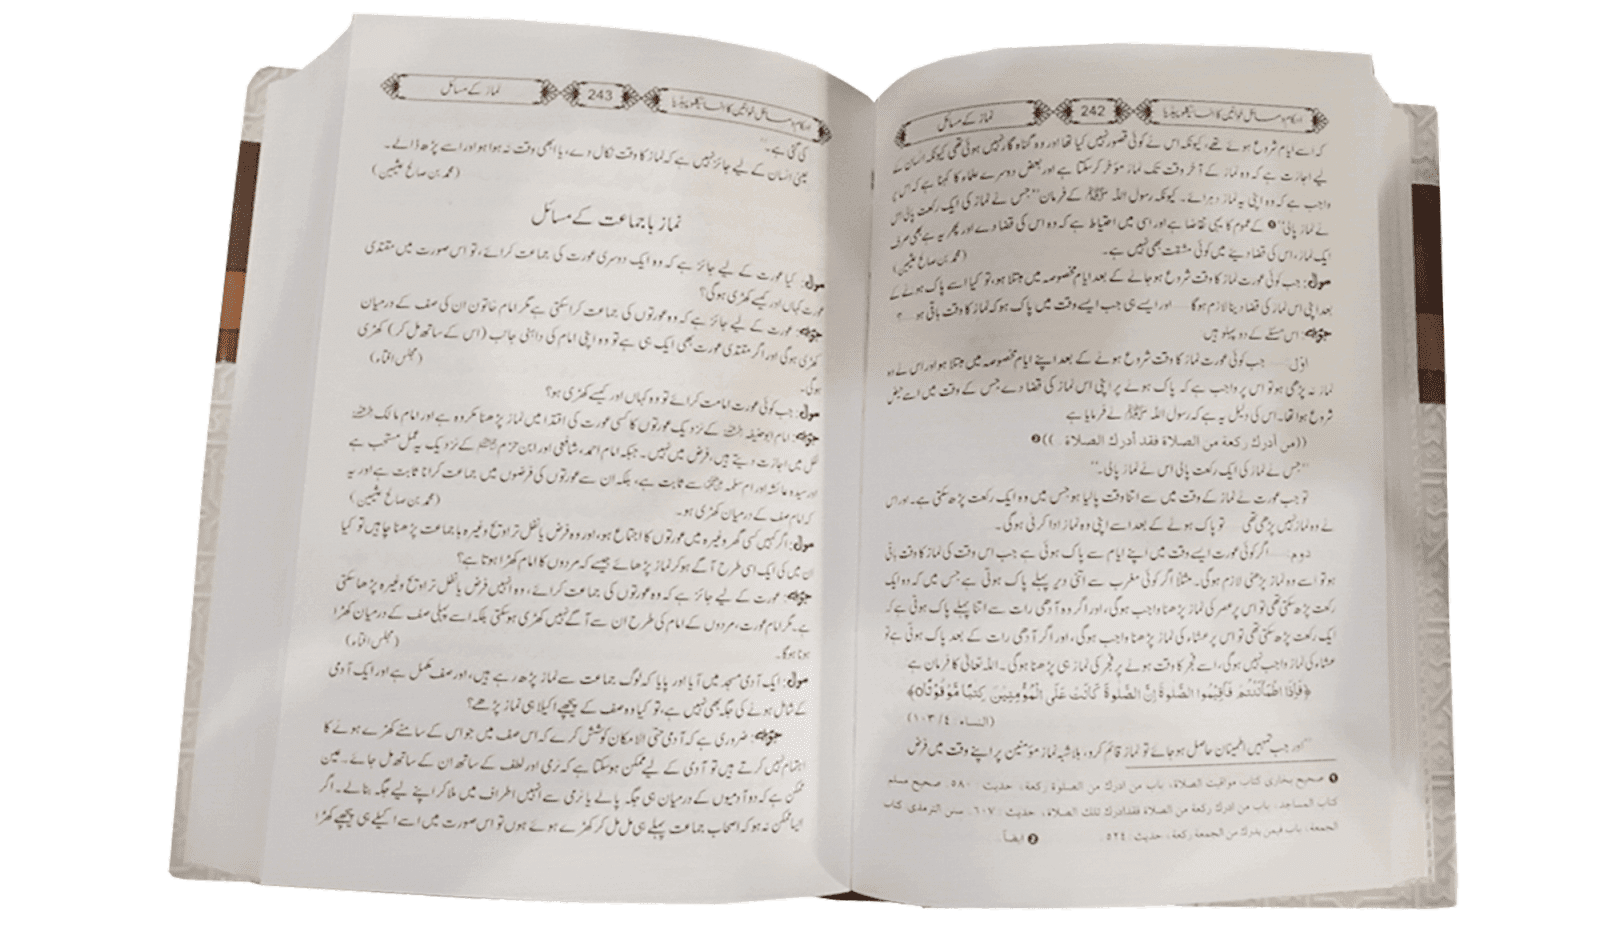 احکام و مسائل خواتین کا انسائیکلوپیڈیا 242 نماز کے مسائل
کہ اسے ایام شروع ہوئے تھے، کیونکہ اس نے کوئی قصور نہیں کیا تھا اور وہ گناہ گار نہیں ہوئی تھی کیونکہ انسان کے
لیے اجازت ہے کہ وہ نماز کے آخر وقت تک نماز مؤخر کرسکتا ہے اور بعض دوسرے علماء کا کہنا ہے کہ اس پر
واجب ہے کہ وہ اپنی یہ نماز دہرائے۔ کیونکہ رسول اللہ ﷺ کے فرمان "جس نے نماز کی ایک رکعت پالی اس
نے نماز پالی" ❶ کے عموم کا یہی تقاضا ہے اور اسی میں احتیاط ہے کہ وہ اس کی قضا دے اور پھر یہ ہے بھی صرف
ایک نماز، اس کی قضا دینے میں کوئی مشقت بھی نہیں ہے۔ (محمد بن صالح عثیمین)
سوال: جب کوئی عورت نماز کا وقت شروع ہو جانے کے بعد ایام مخصوصہ میں مبتلا ہو، تو کیا اسے پاک ہونے کے
بعد اپنی اس نماز کی قضا دینا لازم ہوگا اور ایسے ہی جب ایسے وقت میں پاک ہو کہ نماز کا وقت باقی ہو؟
جواب: اس مسئلے کے دو پہلو ہیں
اوّل جب کوئی عورت نماز کا وقت شروع ہونے کے بعد اپنے ایام مخصوصہ میں مبتلا ہو اور اس نے وہ
نماز نہ پڑھی ہو تو اس پر واجب ہے کہ پاک ہونے پر اپنی اس نماز کی قضا دے جس کے وقت میں اسے حیض
شروع ہوا تھا۔ اس کی دلیل یہ ہے کہ رسول اللہ ﷺ نے فرمایا ہے
((من أدرك ركعة من الصلاة فقد أدرك الصلاة .)) ❷
"جس نے نماز کی ایک رکعت پالی اس نے نماز پالی۔"
تو جب عورت نے نماز کے وقت میں سے اتنا وقت پالیا ہو جس میں وہ ایک رکعت پڑھ سکتی ہے۔ اور اس
نے وہ نماز نہیں پڑھی تھی تو پاک ہونے کے بعد اسے اپنی وہ نماز ادا کرنی ہوگی۔
دوم اگر کوئی عورت ایسے وقت میں اپنے ایام سے پاک ہوئی ہے جب اس وقت کی نماز کا وقت باقی
ہو تو اسے وہ نماز پڑھنی لازم ہوگی۔ مثلاً اگر کوئی مغرب سے اتنی دیر پہلے پاک ہوئی ہے جس میں کہ وہ ایک
رکعت پڑھ سکتی تھی تو اس پر عصر کی نماز پڑھنا واجب ہوگی، اور اگر وہ آدھی رات سے اتنا پہلے پاک ہوئی ہے کہ
ایک رکعت پڑھ سکتی تھی تو اس پر عشاء کی نماز پڑھنا واجب ہوگی، اور اگر آدھی رات کے بعد پاک ہوئی ہے تو
عشاء کی نماز واجب نہیں ہوگی، اسے فجر کا وقت ہونے پر فجر کی نماز ہی پڑھنا ہوگی۔ اللہ تعالیٰ کا فرمان ہے
﴿فَاِذَا اطْمَاْنَنْتُمْ فَاَقِيْمُوا الصَّلٰوةَ اِنَّ الصَّلٰوةَ كَانَتْ عَلَى الْمُؤْمِنِيْنَ كِتٰبًا مَّوْقُوْتًا﴾
(النساء: ٤/ ١٠٣)
"اور جب تمہیں اطمینان حاصل ہو جائے تو نماز قائم کرو، بلاشبہ نماز مؤمنین پر اپنے وقت میں فرض
❶ صحيح بخارى كتاب مواقيت الصلاة، باب من ادرك من الصلوة ركعة، حديث: ٥٨٠. صحيح مسلم
كتاب المساجد، باب من ادرك ركعة من الصلاة فقد ادرك تلك الصلاة، حديث: ٦٠٧. سنن الترمذى كتاب
الجمعة، باب فيمن يدرك من الجمعة ركعة، حديث: ٥٢٤. ❷ ايضاً.
احکام و مسائل خواتین کا انسائیکلوپیڈیا 243 نماز کے مسائل
کی گئی ہے۔"
یعنی انسان کے لیے جائز نہیں ہے کہ نماز کا وقت نکال دے، یا ابھی وقت نہ ہوا ہو اور اسے پڑھ ڈالے۔
(محمد بن صالح عثیمین)
نماز باجماعت کے مسائل
سوال: کیا عورت کے لیے جائز ہے کہ وہ ایک دوسری عورت کی جماعت کرائے، تو اس صورت میں مقتدی
عورت کہاں اور کیسے کھڑی ہوگی؟
جواب: عورت کے لیے جائز ہے کہ وہ عورتوں کی جماعت کراسکتی ہے مگر امام خاتون ان کی صف کے درمیان
کھڑی ہوگی اور اگر مقتدی عورت بھی ایک ہی ہے تو وہ اپنی امام کی داہنی جانب (اس کے ساتھ مل کر) کھڑی
ہوگی۔ (مجلس افتاء)
سوال: جب کوئی عورت امامت کرائے تو وہ کہاں اور کیسے کھڑی ہو؟
جواب: امام ابوحنیفہ رحمہ اللہ کے نزدیک عورتوں کا کسی عورت کی اقتدا میں نماز پڑھنا مکروہ ہے اور امام مالک رحمہ اللہ
نفل میں اجازت دیتے ہیں، فرض میں نہیں۔ جبکہ امام احمد، شافعی اور ابن حزم کے نزدیک یہ عمل مستحب ہے
اور سیدہ عائشہ اور ام سلمہ سے ثابت ہے، بلکہ ان سے عورتوں کی فرضوں میں جماعت کرانا ثابت ہے اور یہ
کہ امام صف کے درمیان کھڑی ہو۔ (محمد بن صالح عثیمین)
سوال: اگر کہیں کسی گھر وغیرہ میں عورتوں کا اجتماع ہو، اور وہ فرض یا نفل تراویح وغیرہ باجماعت پڑھنا چاہیں تو کیا
ان میں کی ایک اسی طرح آگے ہوکر نماز پڑھائے جیسے کہ مردوں کا امام کھڑا ہوتا ہے؟
جواب: عورت کے لیے جائز ہے کہ وہ عورتوں کی جماعت کرائے، وہ انہیں فرض یا نفل تراویح وغیرہ پڑھا سکتی
ہے۔ مگر امام عورت، مردوں کے امام کی طرح ان سے آگے نہیں کھڑی ہوسکتی بلکہ اسے پہلی صف کے درمیان کھڑا
ہونا ہوگا۔ (مجلس افتاء)
سوال: ایک آدمی مسجد میں آیا اور پایا کہ لوگ جماعت سے نماز پڑھ رہے ہیں، اور صف مکمل ہے اور ایک آدمی
کے شامل ہونے کی جگہ بھی نہیں ہے، تو کیا وہ صف کے پیچھے اکیلا ہی نماز پڑھے؟
جواب: ضروری ہے کہ آدمی حتی الامکان کوشش کرے کہ اس صف میں جو اس کے سامنے کھڑے ہونے کا
اہتمام نہیں کرتے ہیں تو آدمی کے لیے ممکن ہوسکتا ہے کہ نرمی اور لطف کے ساتھ ان کے ساتھ مل جائے۔ عین
ممکن ہے کہ دو آدمیوں کے درمیان ہی جگہ پالے یا نرمی سے انہیں اطراف میں ملا کر اپنے لیے جگہ بنالے۔ اگر
ایسا ممکن نہ ہو کہ اصحاب جماعت پہلے ہی مل مل کر کھڑے ہوئے ہوں تو اس صورت میں اسے اکیلے ہی پیچھے کھڑا